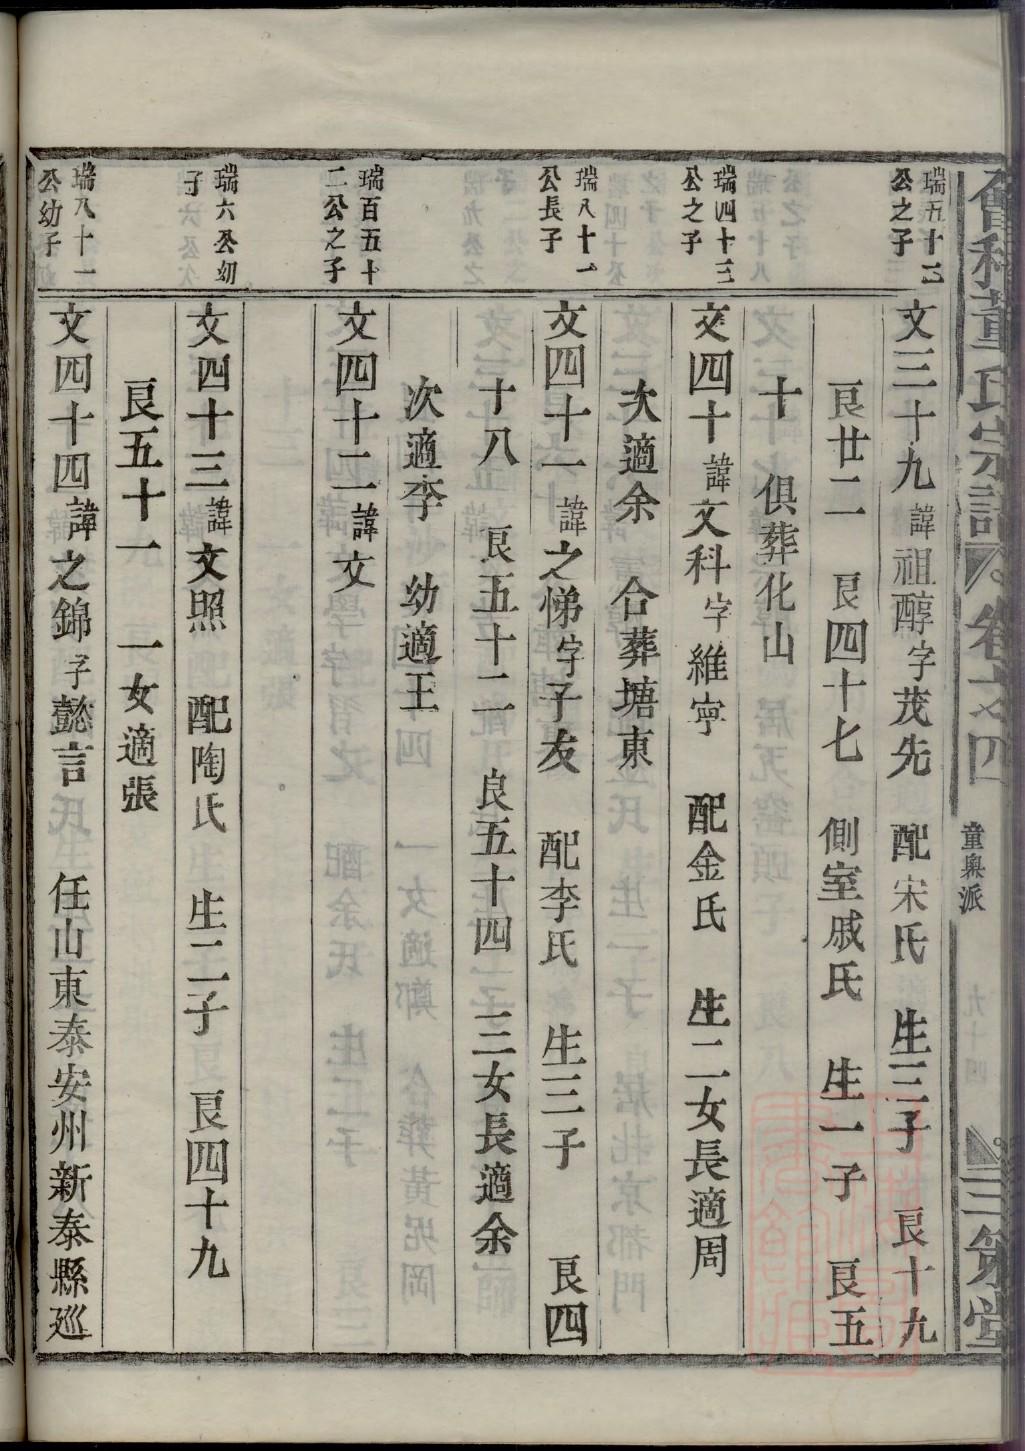 會稽董氏宗譜 卷之四 童奧派 九十四 三策堂
瑞五十三
公之子
文三十九諱祖醇字茂先 配宋氏 生三子 艮十九
艮廿二 艮四十七 側室戚氏 生一子 艮五
十 俱葬化山
瑞四十三
公之子
文四十諱文科字維寧 配金氏 生二女長適周
次適余 合葬塘東
瑞八十一
公長子
文四十一諱之悌字子友 配李氏 生三子 艮四
十八 艮五十二 良五十四 三女長適余
次適李 幼適王
瑞百五十
二公之子
文四十二諱文
瑞六公幼
子
文四十三諱文照 配陶氏 生二子 艮四十九
艮五十一 一女適張
瑞八十一
公幼子
文四十四諱之錦子懿言 任山東泰安州新泰縣巡